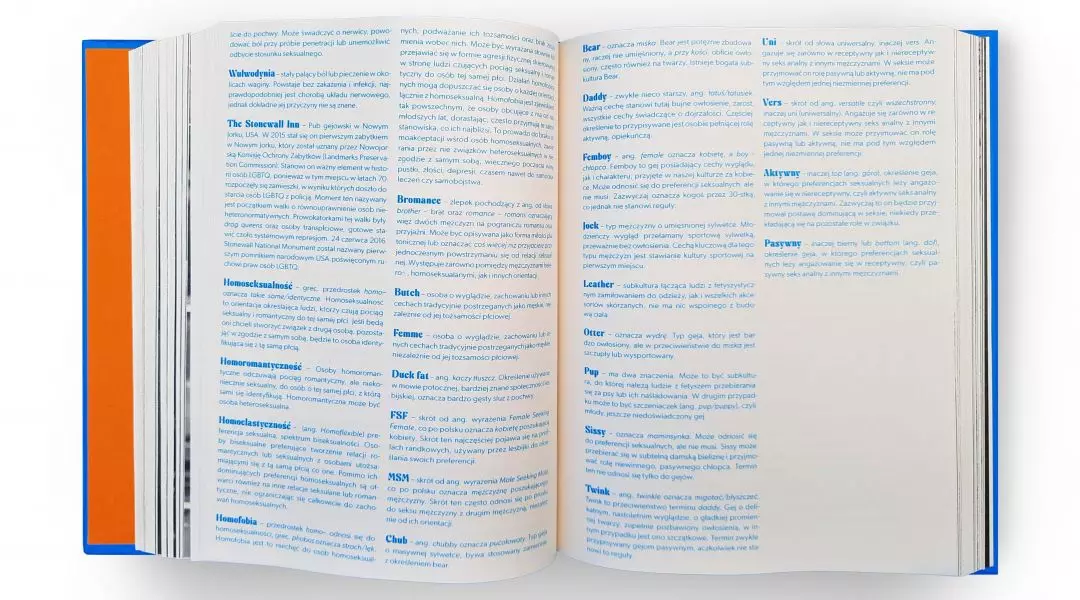 ście do pochwy. Może świadczyć o nerwicy, powo-
dować ból przy próbie penetracji lub uniemożliwić
odbycie stosunku seksualnego.
Wulwodynia – stały palący ból lub pieczenie w oko-
licach waginy. Powstaje bez zakażenia i infekcji, naj-
prawdopodobniej jest chorobą układu nerwowego,
jednak dokładne jej przyczyny nie są znane.
The Stonewall Inn – Pub gejowski w Nowym
Jorku, USA. W 2015 stał się on pierwszym zabytkiem
w Nowym Jorku, który został uznany przez Nowojor-
ską Komisję Ochrony Zabytków (Landmarks Preserva-
tion Commission). Stanowi on ważny element w histo-
rii osób LGBTQ, ponieważ w tym miejscu w latach 70.
rozpoczęły się zamieszki, w wyniku których doszło do
starcia osób LGBTQ z policją. Moment ten nazywany
jest początkiem walki o równouprawnienie osób nie-
heteronormatywnych. Prowokatorkami tej walki były
drag queens oraz osoby transpłciowe, gotowe sta-
wić czoło systemowym represjom. 24 czerwca 2016
Stonewall National Monument został nazwany pierw-
szym pomnikiem narodowym USA poświęconym ru-
chowi praw osób LGBTQ.
Homoseksualność – grec. przedrostek homo-
oznacza takie same/identyczne. Homoseksualność
to orientacja określająca ludzi, którzy czują pociąg
seksualny i romantyczny do tej samej płci. Jeśli będą
oni chcieli stworzyć związek z drugą osobą, pozosta-
jąc w zgodzie z samym sobą, będzie to osoba identy-
fikująca się z tą samą płcią.
Homoromantyczność – Osoby homoroman-
tyczne odczuwają pociąg romantyczny, ale nieko-
niecznie seksualny, do osób o tej samej płci, z którą
sami się identyfikują. Homoromantyczna może być
osoba heteroseksualna.
Homoelastyczność – (ang. Homoflexible) pre-
ferencja seksualna, spektrum biseksualności. Oso-
by biseksualne preferujące tworzenie relacji ro-
mantycznych lub seksualnych z osobami utożsa-
miającymi się z tą samą płcią co one. Pomimo ich
dominujących preferencji homoseksualnych są ot-
warci również na inne relacje seksualne lub roman-
tyczne, nie ograniczając się całkowicie do zacho-
wań homoseksualnych.
Homofobia – przedrostek homo- odnosi się do
homoseksualności, grec. phobos oznacza strach/lęk.
Homofobia jest to niechęć do osób homoseksual-
nych, podważanie ich tożsamości oraz brak
mienia wobec nich. Może być wyrażana słownie
przejawiać się w formie agresji fizycznej skierowanej
w stronę ludzi czujących pociąg seksualny i roman-
tyczny do osób tej samej płci. Działań homofobicz-
nych mogą dopuszczać się osoby o każdej orientacji,
łącznie z homoseksualną. Homofobia jest zjawiskiem
tak powszechnym, że osoby obcujące z nią od naj-
młodszych lat, dorastając, często przyjmują te same
stanowiska, co ich najbliżsi. To prowadzi do braku sa-
moakceptacji wśród osób homoseksualnych, zawie-
rania przez nie związków heteroseksualnych w nie-
zgodzie z samym sobą, wiecznego poczucia winy,
pustki, złości, depresji, czasem nawet do samooka-
leczeń czy samobójstwa.
Bromance – zlepek pochodzący z ang. od słowa
brother – brat oraz romance – romans oznaczający
więź dwóch mężczyzn na pograniczu romansu oraz
przyjaźni. Może być opisywana jako forma miłości pla-
tonicznej lub oznaczać coś więcej niż przyjaźń przy
jednoczesnym powstrzymaniu się od relacji seksual-
nej. Występuje zarówno pomiędzy mężczyznami hete-
ro-, homoseksualnymi, jak i innych orientacji.
Butch – osoba o wyglądzie, zachowaniu lub innych
cechach tradycyjnie postrzeganych jako męskie, nie-
zależnie od jej tożsamości płciowej.
Femme – osoba o wyglądzie, zachowaniu lub in-
nych cechach tradycyjnie postrzeganych jako męskie
niezależnie od jej tożsamości płciowej.
Duck fat – ang. kaczy tłuszcz. Określenie używane
w mowie potocznej, bardziej znane społeczności les-
bijskiej, oznacza bardzo gęsty śluz z pochwy.
FSF – skrót od ang. wyrażenia Female Seeking
Female, co po polsku oznacza kobietę poszukującą
kobiety. Skrót ten najczęściej pojawia się na profi-
lach randkowych, używany przez lesbijki do okre-
ślania swoich preferencji.
MSM – skrót od ang. wyrażenia Male Seeking Male,
co po polsku oznacza mężczyznę poszukującego
mężczyzny. Skrót ten często odnosi się po prostu
do seksu mężczyzny z drugim mężczyzną, niezależ-
nie od ich orientacji.
Chub – ang. chubby oznacza pucołowaty. Typ geja
o masywnej sylwetce, bywa stosowany zamiennie
z określeniem bear.
Bear – oznacza misko. Bear jest potężnie zbudowa-
ny, raczej nie umięśniony, a przy kości, obficie owło-
siony, często również na twarzy. Istnieje bogata sub-
kultura Bear.
Daddy – zwykle nieco starszy, ang. tatuś/tatusiek.
Ważną cechą stanowi tutaj bujne owłosienie, zarost,
wszystkie cechy świadczące o dojrzałości. Częściej
określenie to przypisywane jest osobie pełniącej rolę
aktywną, opiekuńczą.
Femboy – ang. female oznacza kobietę, a boy –
chłopca. Femboy to gej posiadający cechy wyglądu,
jak i charakteru, przyjęte w naszej kulturze za kobie-
ce. Może odnosić się do preferencji seksualnej, ale
nie musi. Zazwyczaj oznacza kogoś przez 30-stką,
co jednak nie stanowi reguły.
Jock – typ mężczyzny o umięśnionej sylwetce. Mło-
dzieńczy wygląd przełamany sportową sylwetką,
przeważnie bez owłosienia. Cechą kluczową dla tego
typu mężczyzn jest stawianie kultury sportowej na
pierwszym miejscu.
Leather – subkultura łącząca ludzi z fetyszystycz-
nym zamiłowaniem do odzieży, jak i wszelkich akce-
soriów skórzanych, nie ma nic wspólnego z budo-
wą ciała.
Otter – oznacza wydrę. Typ geja, który jest bar-
dzo owłosiony, ale w przeciwieństwie do miska jest
szczupły lub wysportowany.
Pup – ma dwa znaczenia. Może to być subkultu-
ra, do której należą ludzie z fetyszem przebierania
się za psy lub ich naśladowania. W drugim przypad-
ku może to być szczeniaczek (ang. pup/puppy), czyli
młody, jeszcze niedoświadczony gej.
Sissy – oznacza maminsynka. Może odnosić się
do preferencji seksualnych, ale nie musi. Sissy może
przebierać się w subtelną damską bieliznę i przyjmo-
wać rolę niewinnego, pasywnego chłopca. Termin
ten nie odnosi się tylko do gejów.
Twink – ang. twinkle oznacza migotać/błyszczeć.
Twink to przeciwieństwo terminu daddy. Gej o deli-
katnym, nastoletnim wyglądzie, o gładkiej promien-
nej twarzy, zupełnie pozbawiony owłosienia, w in-
nym przypadku jest ono szczątkowe. Termin zwykle
przypisywany gejom pasywnym, aczkolwiek nie sta-
nowi to reguły.
Uni – skrót od słowa uniwersalny, inaczej vers. An-
gażuje się zarówno w receptywny jak i nierecepty-
ny seks analny z innymi mężczyznami. W seksie może
przyjmować on rolę pasywną lub aktywną, nie ma pod
tym względem jednej niezmiennej preferencji.
Vers – skrót od ang. versatile czyli wszechstronny,
inaczej uni (uniwersalny). Angażuje się zarówno w re-
ceptywny jak i niereceptywny seks analny z innymi
mężczyznami. W seksie może przyjmować on rolę
pasywną lub aktywną, nie ma pod tym względem
jednej niezmiennej preferencji.
Aktywny – inaczej top (ang. góra), określenie geja,
w którego preferencjach seksualnych leży angażo-
wanie się w niereceptywny, czyli aktywny seks analny
z innymi mężczyznami. Zazwyczaj to on będzie przyj-
mował postawę dominującą w seksie, niekiedy prze-
kładającą się na pozostałe role w związku.
Pasywny – inaczej bierny lub bottom (ang. dół),
określenie geja, w którego preferencjach seksual-
nych leży angażowanie się w receptywny, czyli pa-
sywny seks analny z innymi mężczyznami.